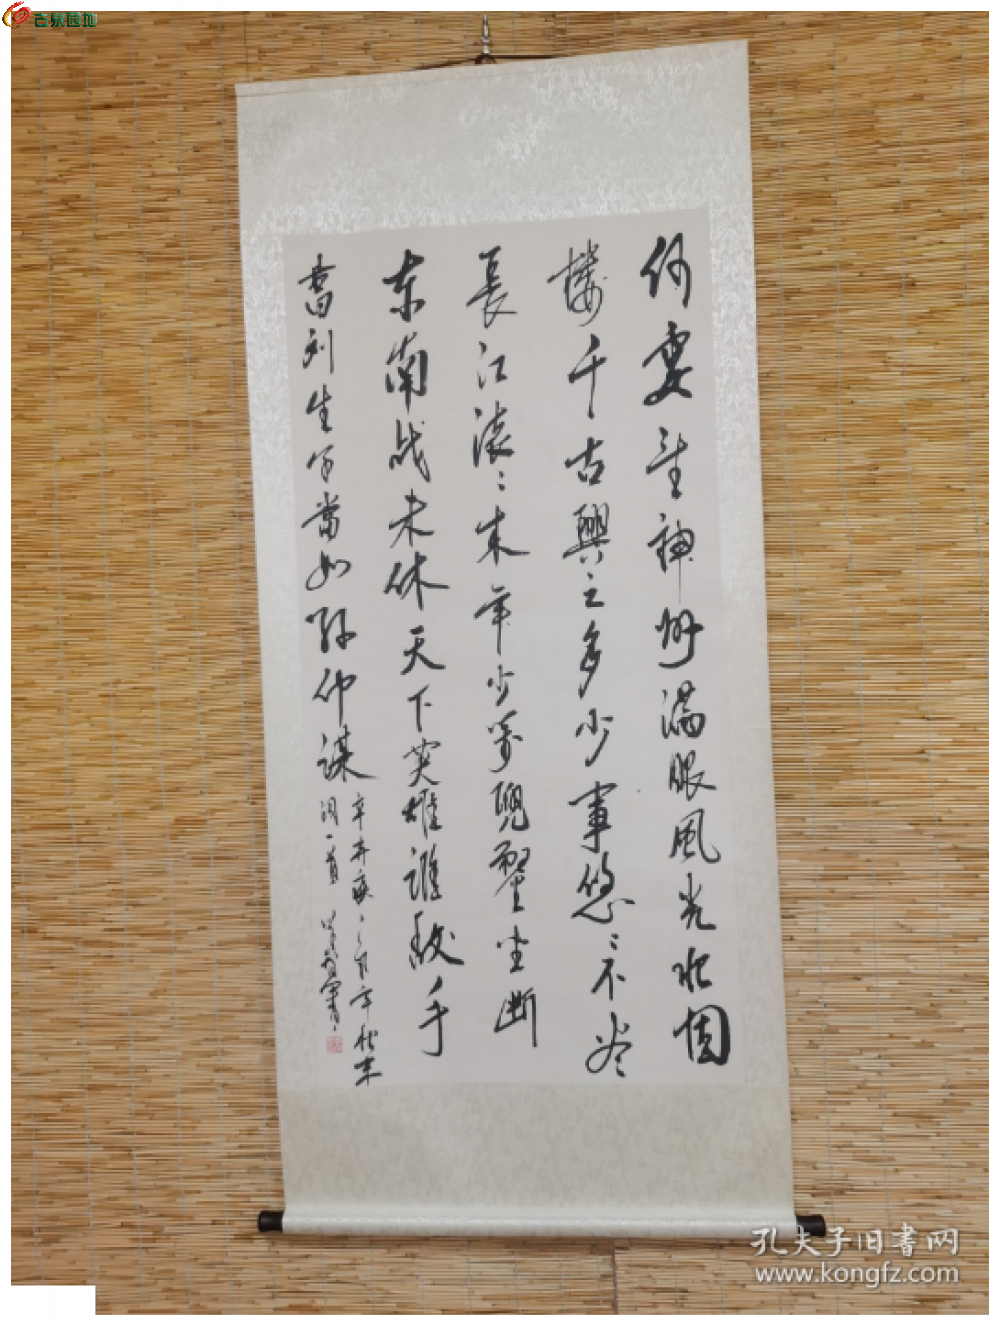 何处望神州满眼风光北固
楼千古兴亡多少事悠々不尽
長江滚々来年少萬兜鍪坐断
东南战未休天下英雄谁敌手
曹刘生子當如孙仲谋
辛弃疾
词一首
孔夫子旧書网
www.kongfz.com